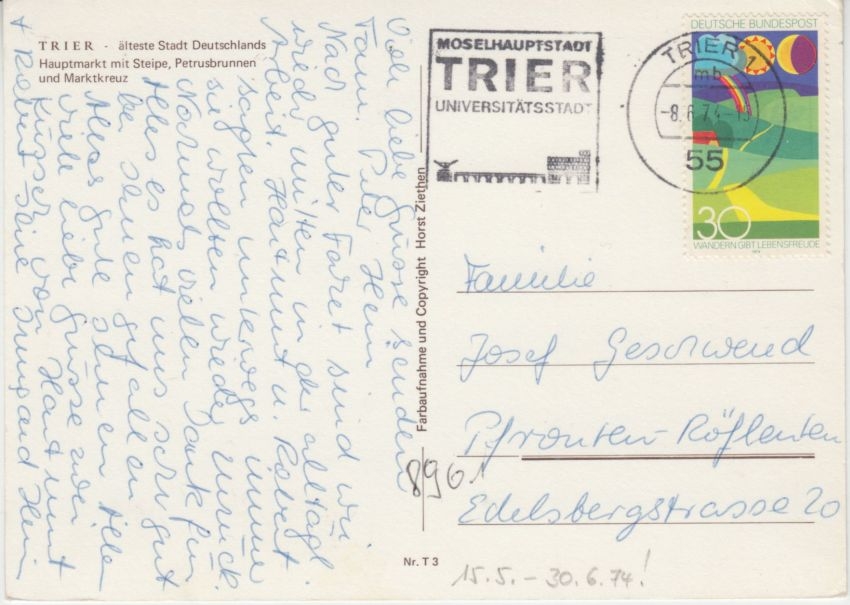 TRIER - älteste Stadt Deutschlands
Hauptmarkt mit Steipe, Petrusbrunnen
und Marktkreuz
Viele liebe Grüsse senden
Fam. Peter Hein
Nach guter Fahrt sind wir
wieder mitten in der alltägl.
Arbeit. Hartmut u. Robert
sagten unterwegs immer
sie wollten wieder zurück.
Nochmals vielen Dank für
Alles es hat uns sehr gut
bei Ihnen gefallen
Alles gute Ihnen Allen
viele liebe Grüsse
Küsschen von Hartmut
+ Robert Hein
Farbaufnahme und Copyright Horst Ziethen
Nr. T 3
MOSELHAUPTSTADT
TRIER
UNIVERSITÄTSSTADT
TRIER 1
mb
-8.6.74-
55
DEUTSCHE BUNDESPOST
30
WANDERN GIBT LEBENSFREUDE
Familie
Josef Geschwend
8961 Pfronten-Röfleuten
Edelsbergstrasse 20
15.5. - 30.6.74!